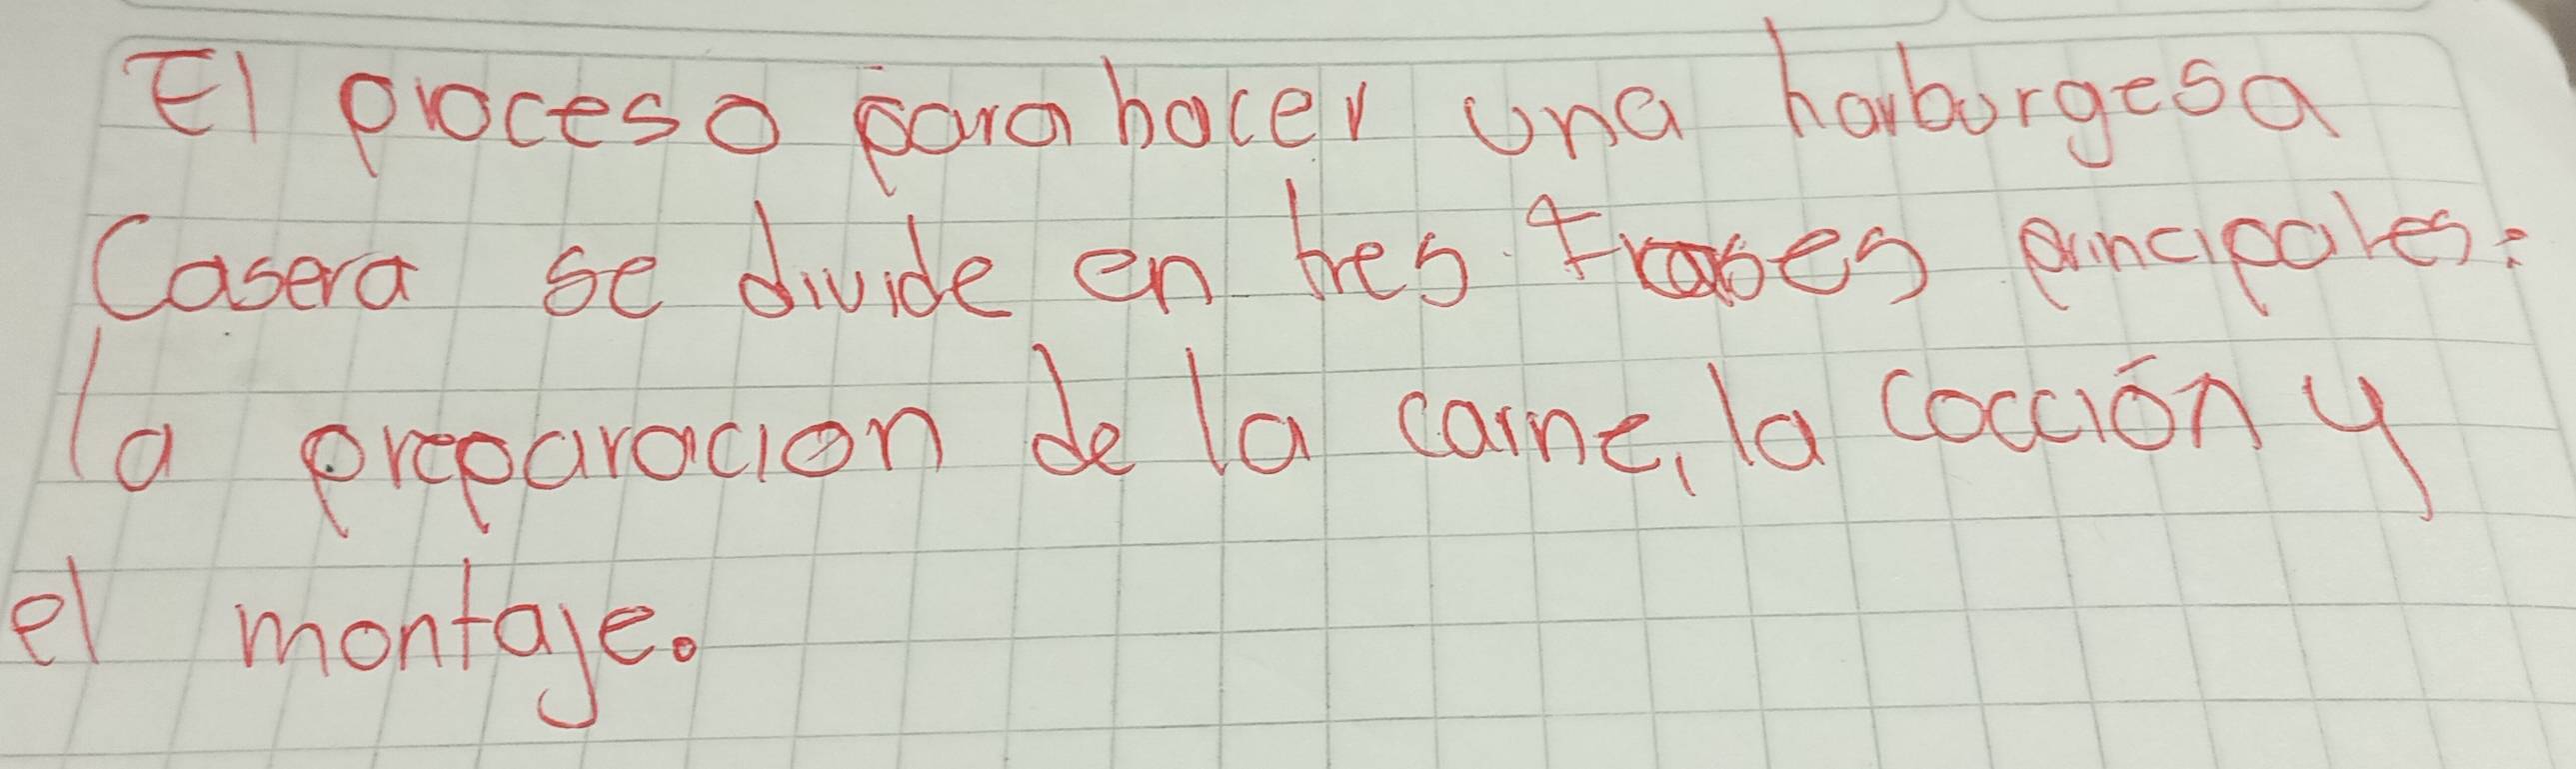 El proceso para hacer una harburgesa
Casera se divide en tres frases principales:
la preparacion de la carne, la cocción y
el montaje.